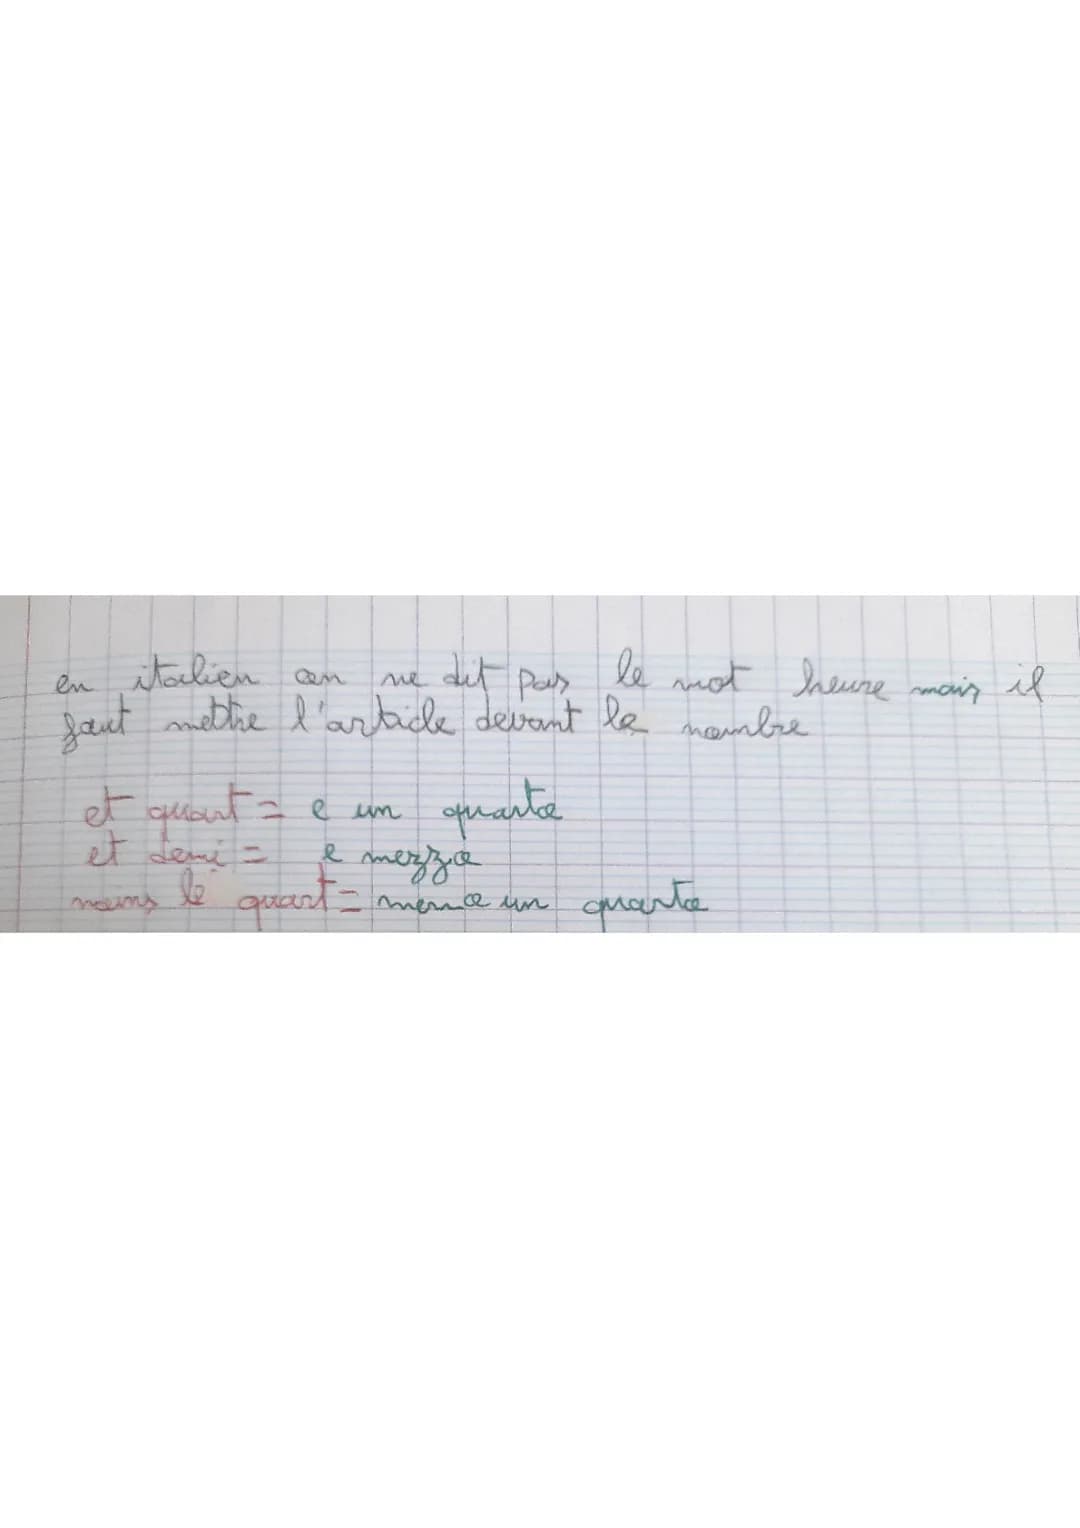 en italien on ne dit pas le mot heure mais il
faut mettre l'article devant le nombre
et quart = e un quarto
et demi = e mezzo
moins le quart = meno un quarto